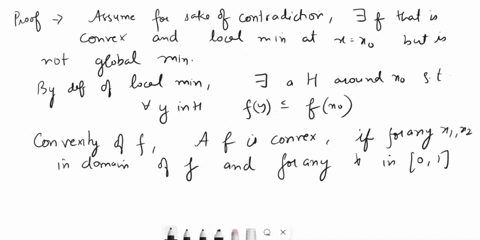 Proof → Assume for sake of contradiction, ∃ f that is
convex and local min at x = x₀ but is
not global min.
By def of local min, ∃ a H around x₀ s.t.
∀ y in H f(y) ≤ f(x₀)
Convexity of f, A f is convex, if for any x₁, x₂
in domain of f and for any t in [0, 1]